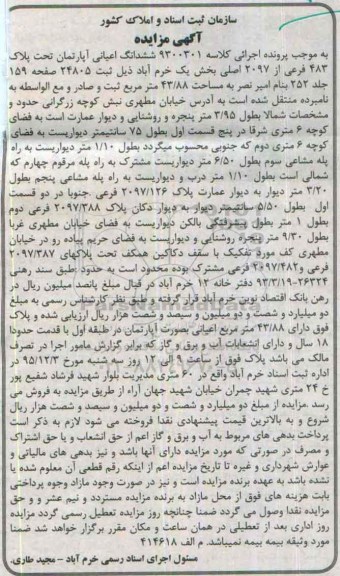 سازمان ثبت اسناد و املاک کشور
آگهی مزایده
به موجب پرونده اجرائی کلاسه ۹۳۰۰۳۰۱ ششدانگ اعیانی آپارتمان تحت پلاک
۴۸۳ فرعی از ۲۰۹۷ اصلی بخش یک خرم آباد ذیل ثبت ۲۴۸۰۵ صفحه ۱۵۹
جلد ۲۵۲ بنام امیر نصر به مساحت ۴۳/۸۸ متر مربع ثبت و صادر و مع الواسطه به
نامبرده منتقل شده است به آدرس خیابان مطهری نبش کوچه زرگرانی حدود و
مشخصات شمالا بطول ۳/۹۵ متر پنجره و روشنایی و دیوار عمارت است به فضای
کوچه ۶ متری شرقا در پنج قسمت اول بطول ۷۵ سانتیمتر دیواریست به فضای
کوچه ۶ متری دوم که جنوبی محسوب میگردد بطول ۱/۱۰ متر دیواریست به راه
پله مشاعی سوم بطول ۶/۵۰ متر دیواریست مشترک به راه پله مرقوم چهارم که
شمالی است بطول ۱/۱۰ متر درب و دیواریست به راه پله مشاعی پنجم بطول
۳/۲۰ متر دیوار به دیوار عمارت پلاک ۲۰۹۷/۱۲۶ فرعی .جنوبا در دو قسمت
اول بطول ۵/۵۰ سانتیمتر دیوار به دیوار دکان پلاک ۲۰۹۷/۳۸۸ فرعی دوم
بطول ۱ متر بطول پیشرفتگی بالکن دیواریست به فضای خیابان مطهری غربا
بطول ۹/۳۰ متر پنجره روشنایی و دیواریست به فضای حریم پیاده رو در خیابان
مطهری کف مورد تفکیک با سقف دکاکین همکف تحت پلاکهای ۲۰۹۷/۳۸۷
فرعی و۲۰۹۷/۴۸۲ فرعی مشترک بوده محدود است به حدود طبق سند رهنی
۲۶۳۲۴-۹۲/۳/۱۹ دفتر خانه ۱۲ خرم آباد در قبال مبلغ پانصد میلیون ریال در
رهن بانک اقتصاد نوین خرم آباد قرار گرفته و طبق نظر کارشناس رسمی به مبلغ
دو میلیارد و شصت و دو میلیون و سیصد و شصت هزار ریال ارزیابی شده و پلاک
فوق دارای ۴۳/۸۸ متر مربع اعیانی بصورت آپارتمان در طبقه اول با قدمت حدودا
۱۸ سال و دارای انشعابات آب و برق و گاز که برابر گزارش مامور اجرا در تصرف
مالک می باشد پلاک فوق از ساعت ۹ الی ۱۲ روز سه شنبه مورخ ۹۵/۱۲/۳ در
اداره ثبت اسناد خرم آباد واقع در ۶۰ متری مدیریت بلوار شهید فرشاد شفیع پور
خ ۲۴ متری شهید چمران خیابان شهید جهان آراء از طریق مزایده به فروش می
رسد .مزایده از مبلغ دو میلیارد و شصت و دو میلیون و سیصد و شصت هزار ریال
شروع و به بالاترین قیمت پیشنهادی نقدا فروخته می شود لازم به ذکر است
پرداخت بدهی های مربوط به آب و برق و گاز اعم از حق انشعاب و یا حق اشتراک
و مصرف در صورتی که مورد مزایده دارای آنها باشد و نیز بدهی های مالیاتی و
عوارض شهرداری و غیره تا تاریخ مزایده اعم از اینکه رقم قطعی آن معلوم شده یا
نشده باشد به عهده برنده مزایده است و نیز در صورت وجود مازاد وجوه پرداختی
بابت هزینه های فوق از محل مازاد به برنده مزایده مسترد و نیم عشر و و حق
مزایده نقدا وصول می گردد ضمنا چنانچه روز مزایده تعطیل رسمی گردد مزایده
روز اداری بعد از تعطیلی در همان ساعت و مکان مقرر برگزار خواهد شد ضمنا
مورد وثیقه بیمه بیمه نمیباشد. م الف ۴۱۴۶۱۸
مسئول اجرای اسناد رسمی خرم آباد - مجید طاری.